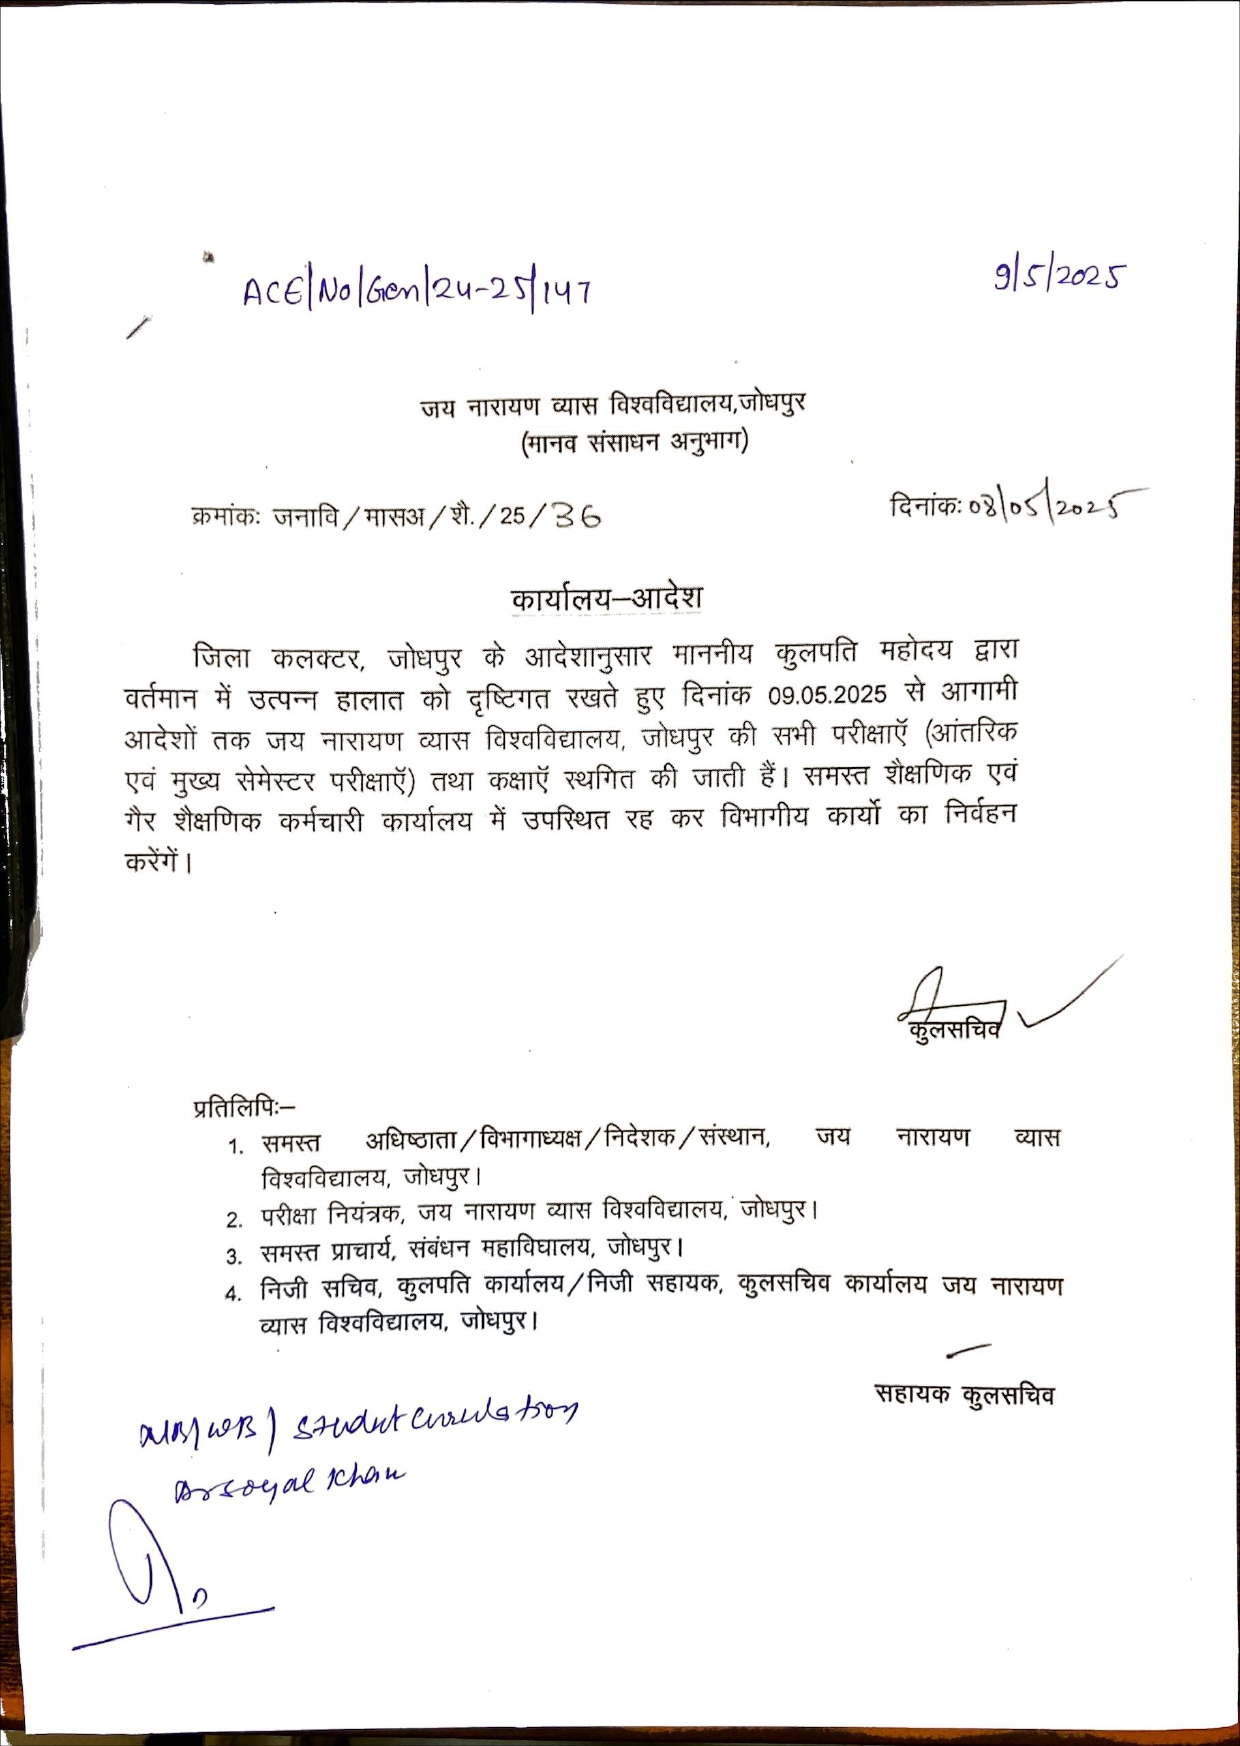 ACE/No/Gen/24-25/147 9/5/2025
जय नारायण व्यास विश्वविद्यालय,जोधपुर
(मानव संसाधन अनुभाग)
क्रमांकः जनावि/मासअ/शै./25/36 दिनांकः 08/05/2025
कार्यालय–आदेश
जिला कलक्टर, जोधपुर के आदेशानुसार माननीय कुलपति महोदय द्वारा
वर्तमान में उत्पन्न हालात को दृष्टिगत रखते हुए दिनांक 09.05.2025 से आगामी
आदेशों तक जय नारायण व्यास विश्वविद्यालय, जोधपुर की सभी परीक्षाऍ (आंतरिक
एवं मुख्य सेमेस्टर परीक्षाऍ) तथा कक्षाऍ स्थगित की जाती हैं। समस्त शैक्षणिक एवं
गैर शैक्षणिक कर्मचारी कार्यालय में उपस्थित रह कर विभागीय कार्यो का निर्वहन
करेंगें।
कुलसचिव
प्रतिलिपिः–
1. समस्त अधिष्ठाता/विभागाध्यक्ष/निदेशक/संस्थान, जय नारायण व्यास
विश्वविद्यालय, जोधपुर।
2. परीक्षा नियंत्रक, जय नारायण व्यास विश्वविद्यालय, जोधपुर।
3. समस्त प्राचार्य, संबंधन महाविघालय, जोधपुर।
4. निजी सचिव, कुलपति कार्यालय/निजी सहायक, कुलसचिव कार्यालय जय नारायण
व्यास विश्वविद्यालय, जोधपुर।
सहायक कुलसचिव
Student Circulation
Khan